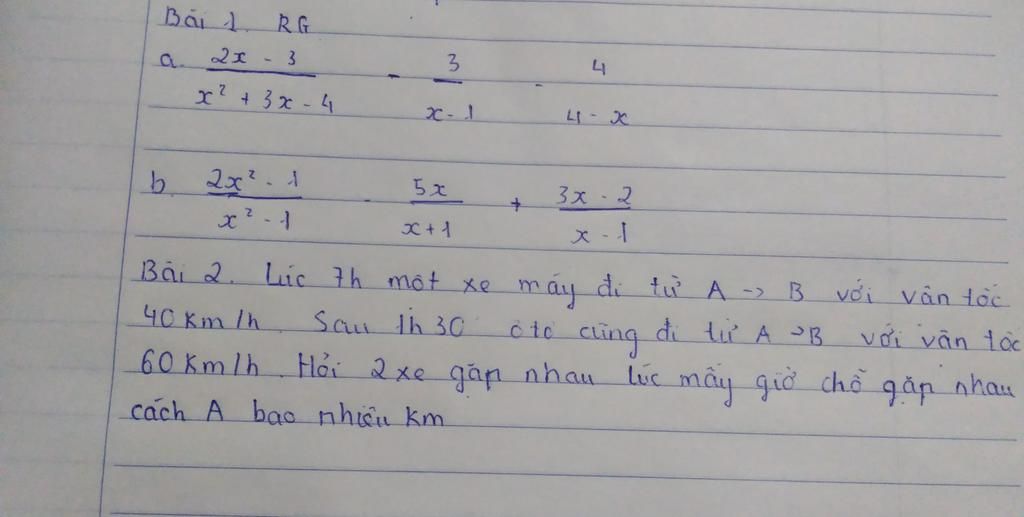 Bài 1. RG
a. (2x - 3)/(x² + 3x - 4) - 3/(x - 1) - 4/(4 - x)
b. (2x² - 1)/(x² - 1) - 5x/(x + 1) + (3x - 2)/(x - 1)
Bài 2. Lúc 7h một xe máy đi từ A -> B với vân tốc
40 Km/h. Sau 1h30 ôtô cũng đi từ A ->B với vân tốc
60 Km/h. Hỏi 2 xe gặp nhau lúc mấy giờ chỗ gặp nhau
cách A bao nhiêu Km